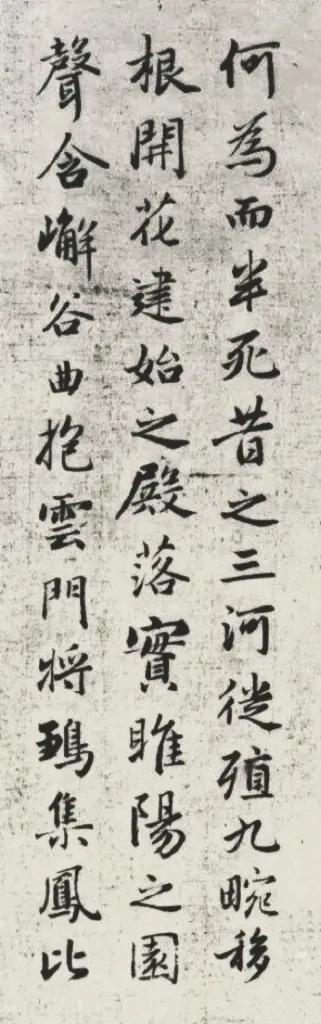 何為而半死昔之三河徙殖九畹移
根開花建始之殿落實睢陽之園
聲含嶰谷曲抱雲門將鵶集鳳比